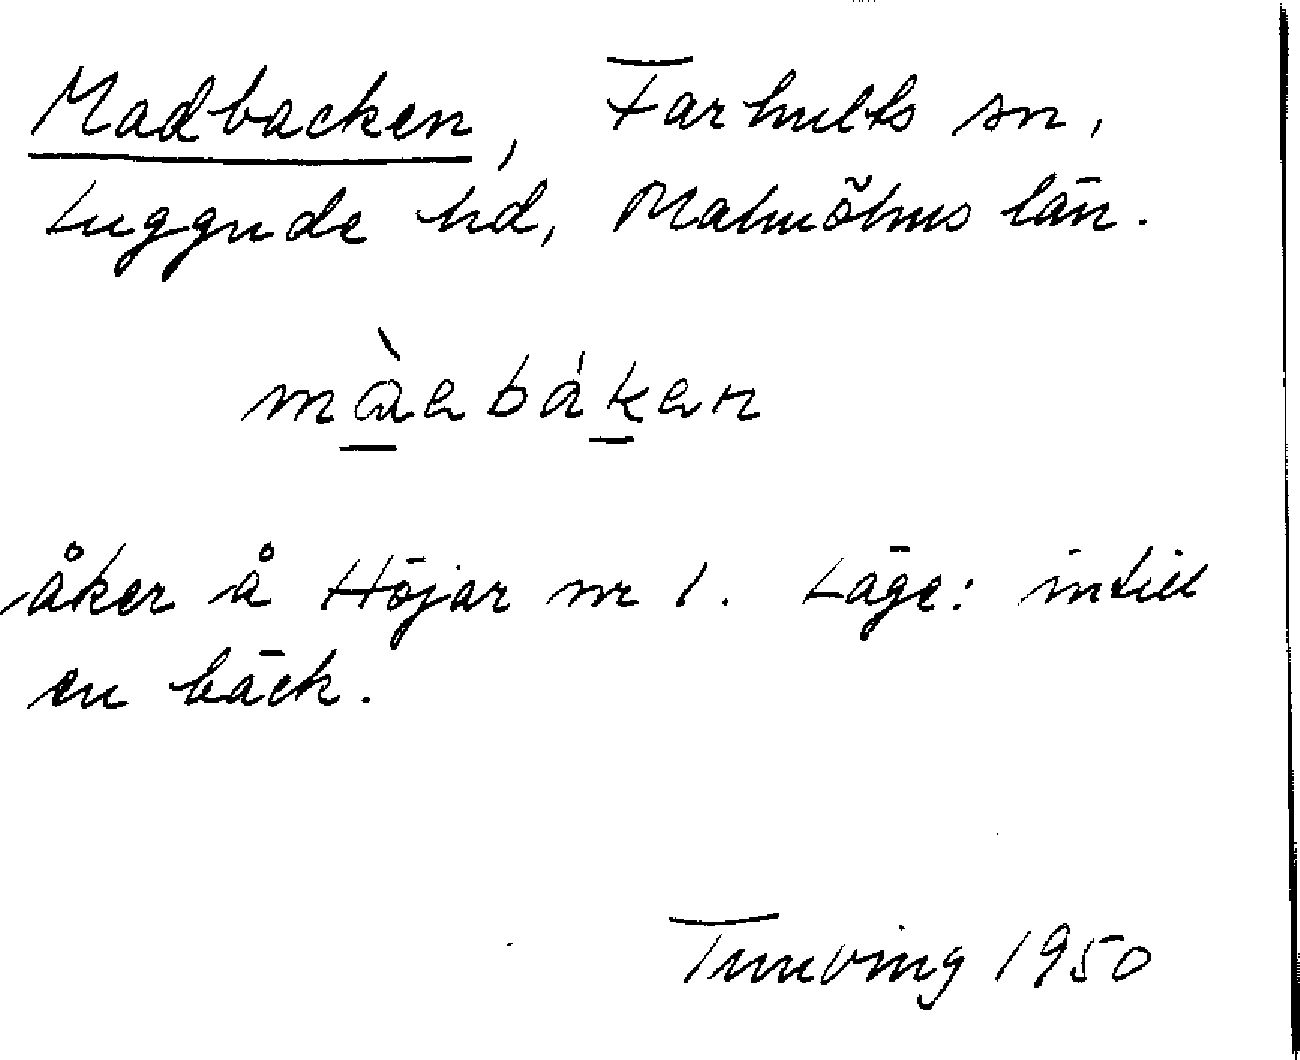 Madbacken, Farhults sn,
Luggude hd, Malmöhus län.
màebáken
åker å Höjar nr 1. Läge: intill
en bäck.
Tuneving 1950